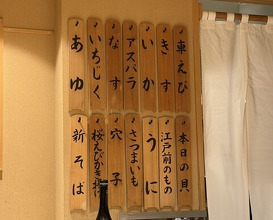 車えび
きす
いか
アスパラ
なす
いちじく
あゆ
本日の貝
江戸前のもの
うに
さつまいも
穴子
桜えびかき揚げ
新そば